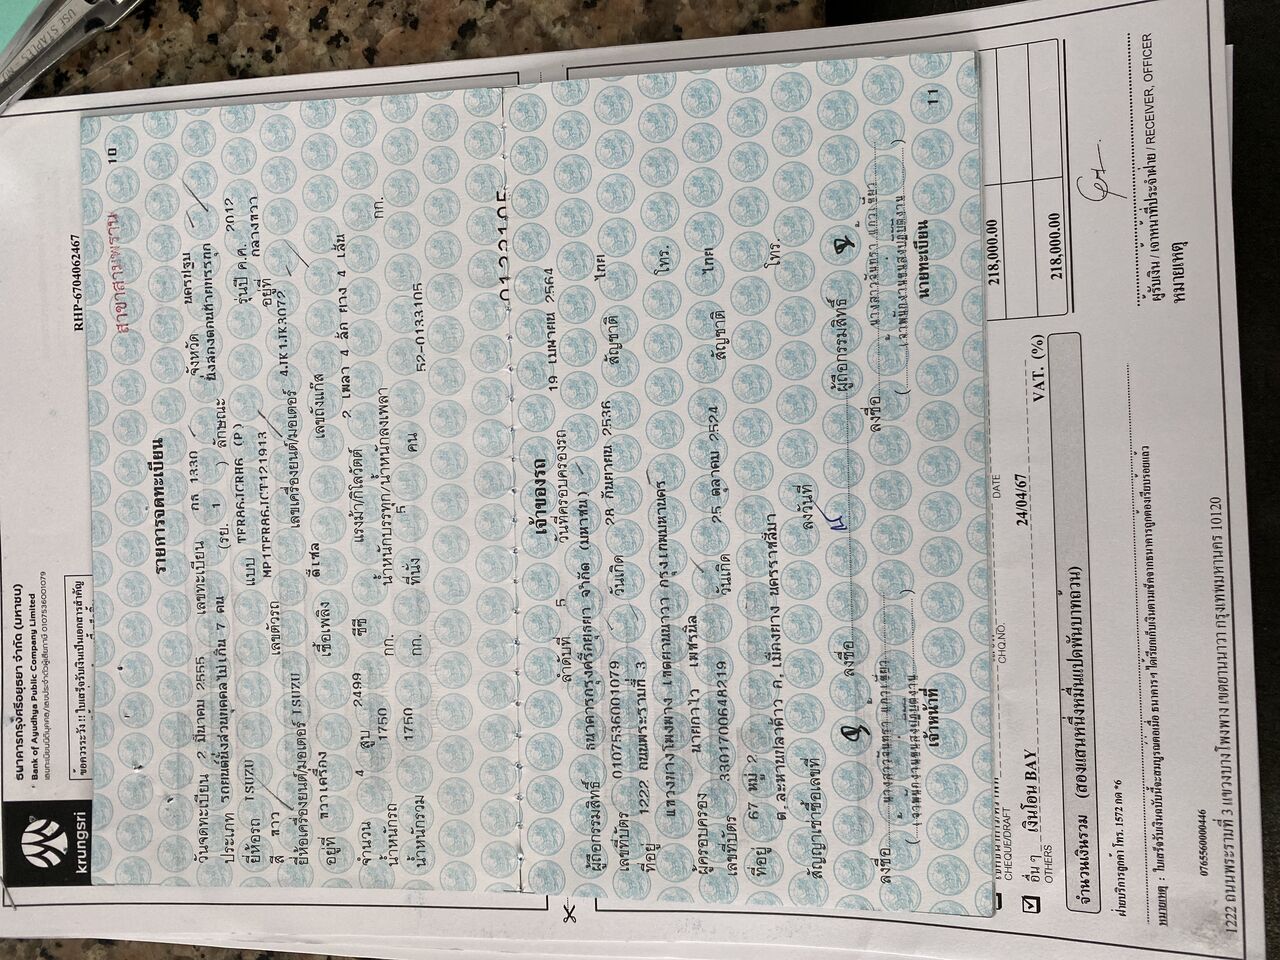 krungsri
ธนาคารกรุงศรีอยุธยา จำกัด (มหาชน)
Bank of Ayudhya Public Company Limited
RHP-6704062467
10
สาขาสามพราน
รายการจดทะเบียน
วันจดทะเบียน 2 มีนาคม 2555 เลขทะเบียน กก 1330 จังหวัด นครปฐม
ประเภท รถยนต์นั่งส่วนบุคคลไม่เกิน 7 คน (รย. 1 ) ลักษณะ
ยี่ห้อรถ ISUZU แบบ TFR86JCRH6 (P) รุ่นปี ค.ศ. 2012
สี ขาว เลขตัวรถ MP1TFR86JCT121913 อยู่ที่ กลางขวา
ยี่ห้อเครื่องยนต์/มอเตอร์ ISUZU เลขเครื่องยนต์/มอเตอร์ 4JK1JK3072
อยู่ที่ ขวาเครื่อง เชื้อเพลิง ดีเซล เลขถังแก๊ส
จำนวน 4 สูบ 2499 ซีซี แรงม้า/กิโลวัตต์ 2 เพลา 4 ล้อ ยาง 4 เส้น
น้ำหนักรถ 1750 กก. น้ำหนักบรรทุก/น้ำหนักลงเพลา กก.
น้ำหนักรวม 1750 กก. ที่นั่ง 5 คน 52-0133105
เจ้าของรถ
ลำดับที่ 5 วันที่ครอบครองรถ 19 เมษายน 2564
ผู้ถือกรรมสิทธิ์ ธนาคารกรุงศรีอยุธยา จำกัด (มหาชน)
เลขที่บัตร 0107536001079 วันเกิด 28 กันยายน 2536 สัญชาติ ไทย
ที่อยู่ 1222 ถนนพระรามที่ 3 โทร.
แขวงบางโพงพาง เขตยานนาวา กรุงเทพมหานคร
ผู้ครอบครอง นายกาไว เพชรนิล
เลขที่บัตร 3301700648319 วันเกิด 25 ตุลาคม 2524 สัญชาติ ไทย
ที่อยู่ 67 หมู่ 2 โทร.
ต.ละหานปลาค้าว อ.เมืองยาง นครราชสีมา
สัญญาเช่าซื้อเลขที่ ลงวันที่
ลงชื่อ ผู้ถือกรรมสิทธิ์
ลงชื่อ นางสาววันทรา แก้วเขียว ลงชื่อ นางสาววันทรา แก้วเขียว
(เจ้าพนักงานขนส่งปฏิบัติงาน) (เจ้าพนักงานขนส่งปฏิบัติงาน)
เจ้าหน้าที่ นายทะเบียน
11
CHEQUE/DRAFT CHQ.NO. DATE 218,000.00
อื่น ๆ เงินโอน BAY 24/04/67
OTHERS
จำนวนเงินรวม (สองแสนหนึ่งหมื่นแปดพันบาทถ้วน) VAT. (%) 218,000.00
ฝ่ายบริการลูกค้า โทร. 1572 กด *6
ผู้รับเงิน / เจ้าหน้าที่ประจำฝ่าย / RECEIVER, OFFICER
หมายเหตุ
หมายเหตุ : ใบเสร็จรับเงินฉบับนี้จะสมบูรณ์ต่อเมื่อ ธนาคารฯ ได้เรียกเก็บเงินตามเช็คจากธนาคารถูกต้องเรียบร้อยแล้ว
0765560000446
1222 ถนนพระรามที่ 3 แขวงบางโพงพาง เขตยานนาวา กรุงเทพมหานคร 10120